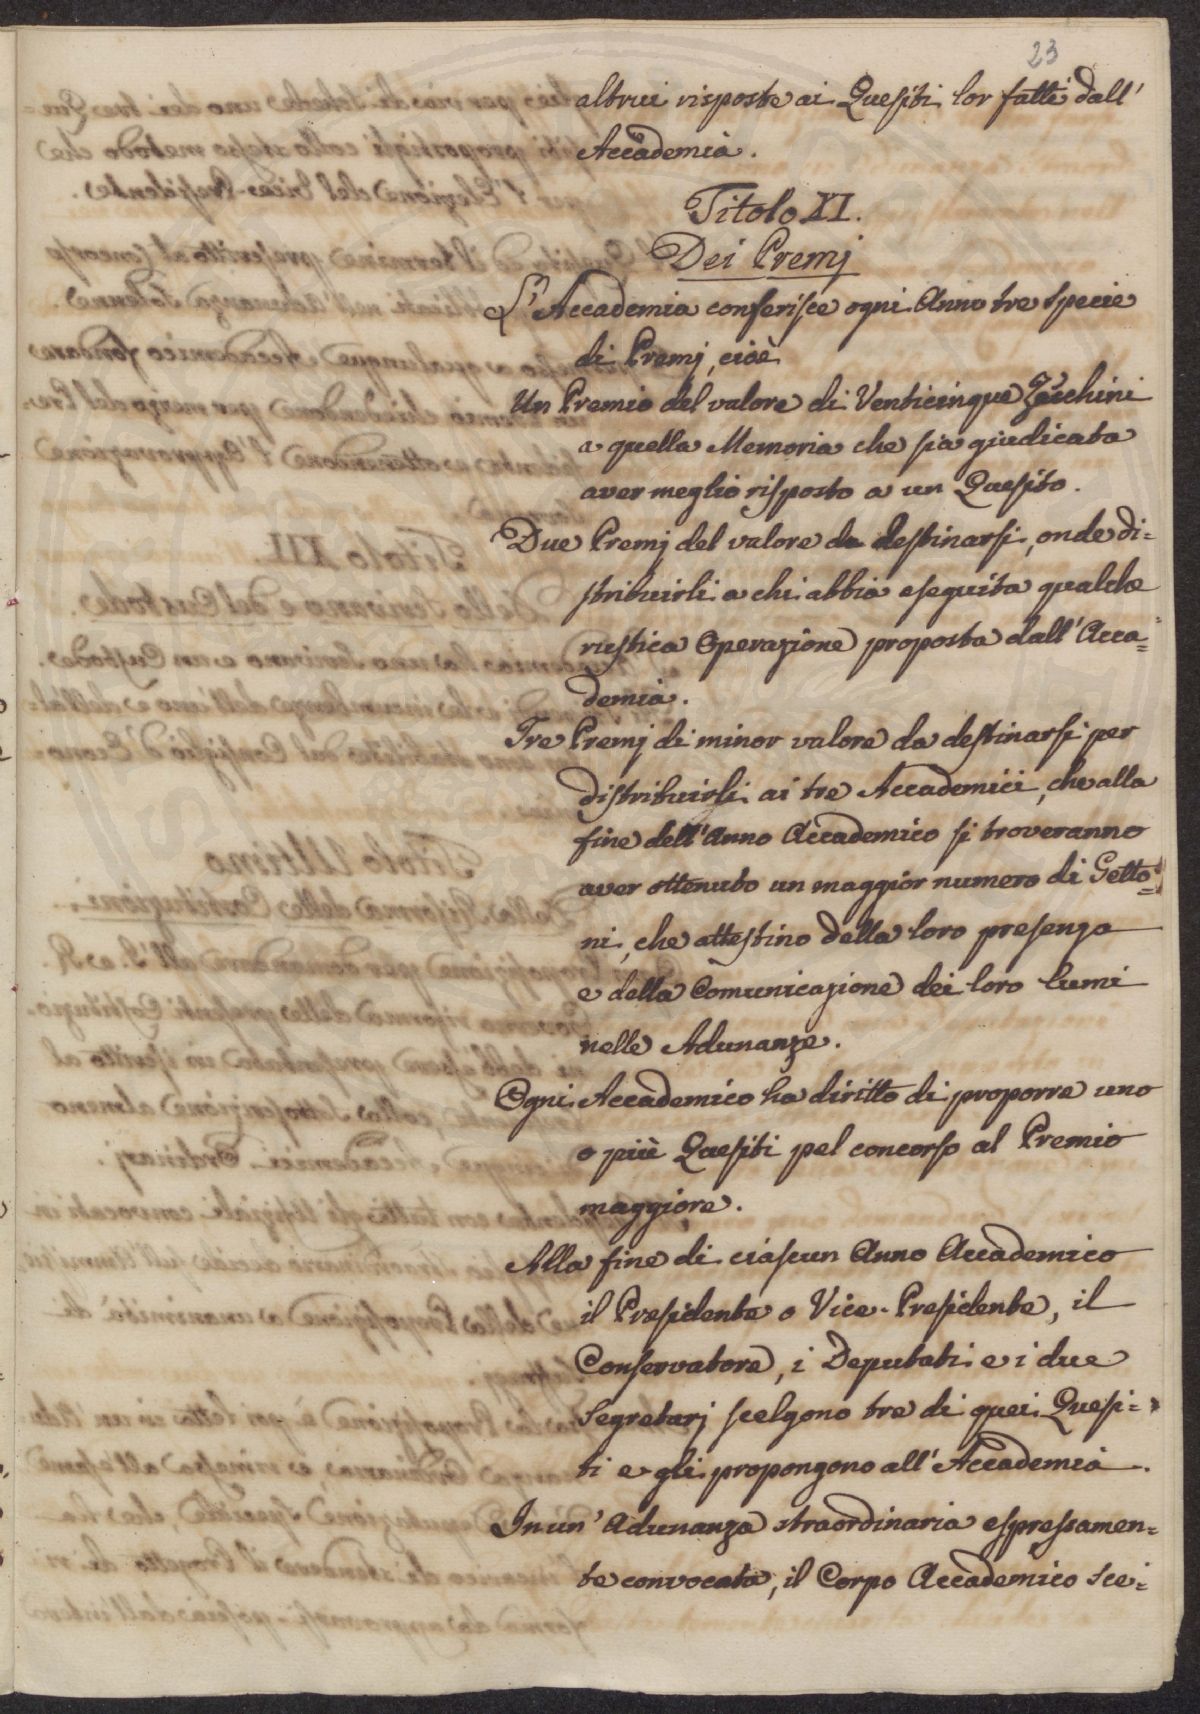 23
altrui risposte ai Quesiti lor fatti dall'
Accademia.
Titolo XI.
Dei Premj
L'Accademia conferisce ogni Anno tre specie
di Premj, cioè
Un Premio del valore di Venticinque Zecchini
a quella Memoria che sia giudicata
aver meglio risposto a un Quesito.
Due Premj del valore da destinarsi, onde di=
stribuirli a chi abbia eseguita qualche
rustica Operazione proposta dall'Acca=
demia.
Tre Premj di minor valore da destinarsi per
distribuirli ai tre Accademici, che alla
fine dell'Anno Accademico si troveranno
aver ottenuto un maggior numero di Getto=
ni, che attestino della loro presenza
e della Comunicazione dei loro lumi
nelle Adunanze.
Ogni Accademico ha diritto di proporre uno
o più Quesiti pel concorso al Premio
maggiore.
Alla fine di ciascun Anno Accademico
il Presidente o Vice-Presidente, il
Conservatore, i Deputati e i due
Segretarj scelgono tre di quei Quesi=
ti e gli propongono all'Accademia.
In un'Adunanza straordinaria espressamen=
te convocata, il Corpo Accademico sce=